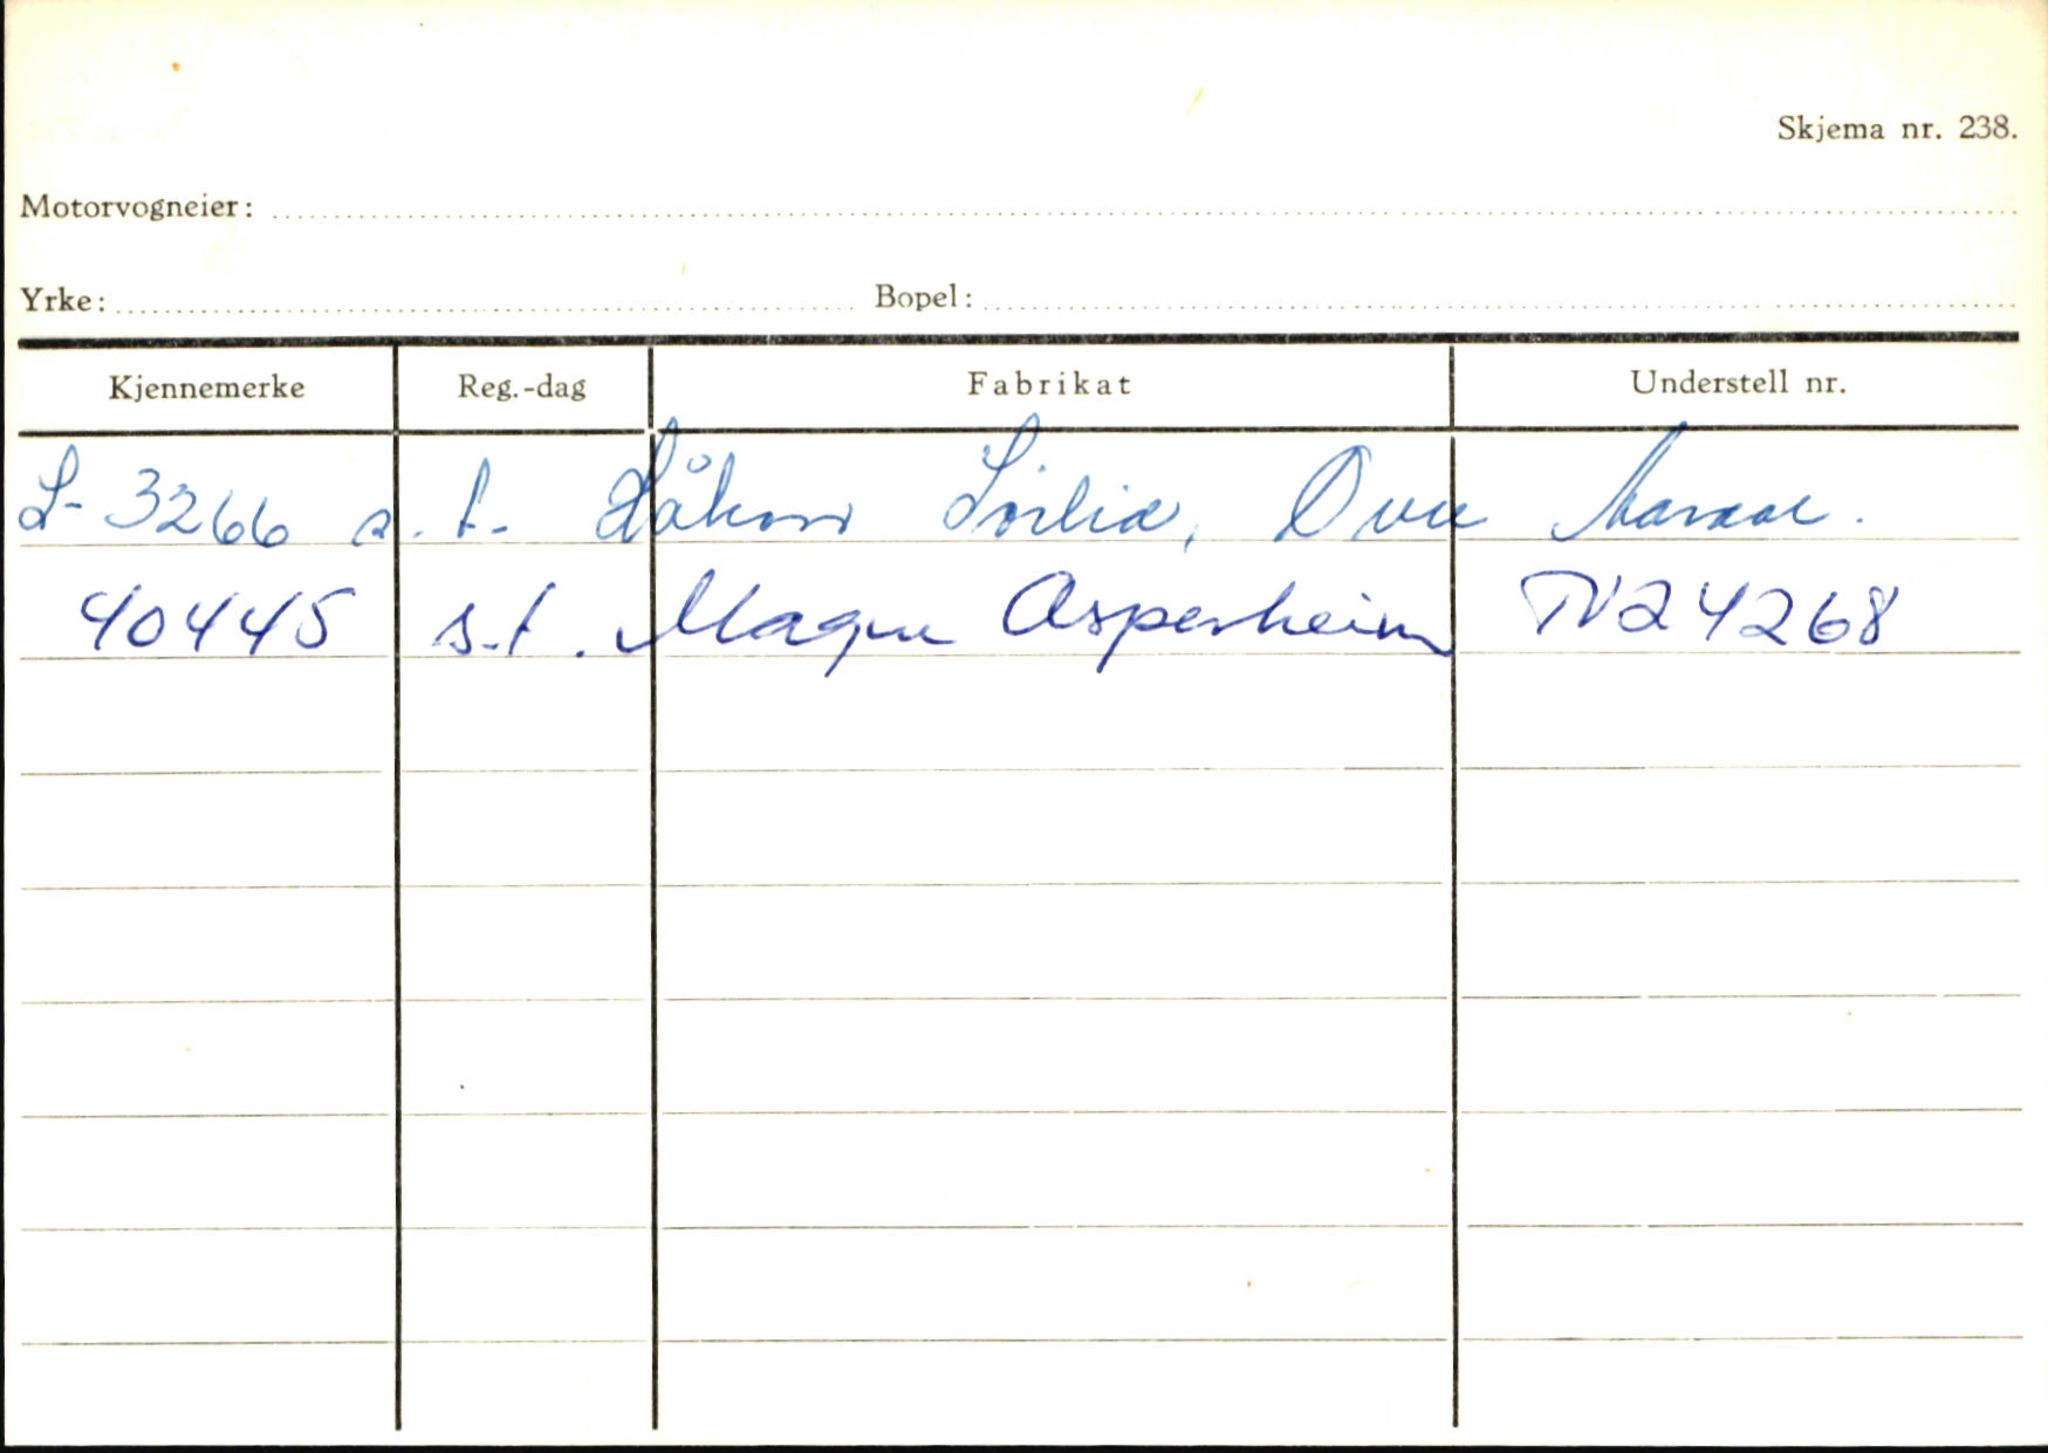 Skjema nr. 238.
Motorvogneier:
Yrke: Bopel:
Kjennemerke Reg.-dag Fabrikat Understell nr.
S-3266 s.t. Håkon Sørlie, Øvre
40445 s.t. Magne Asperheim TV24268